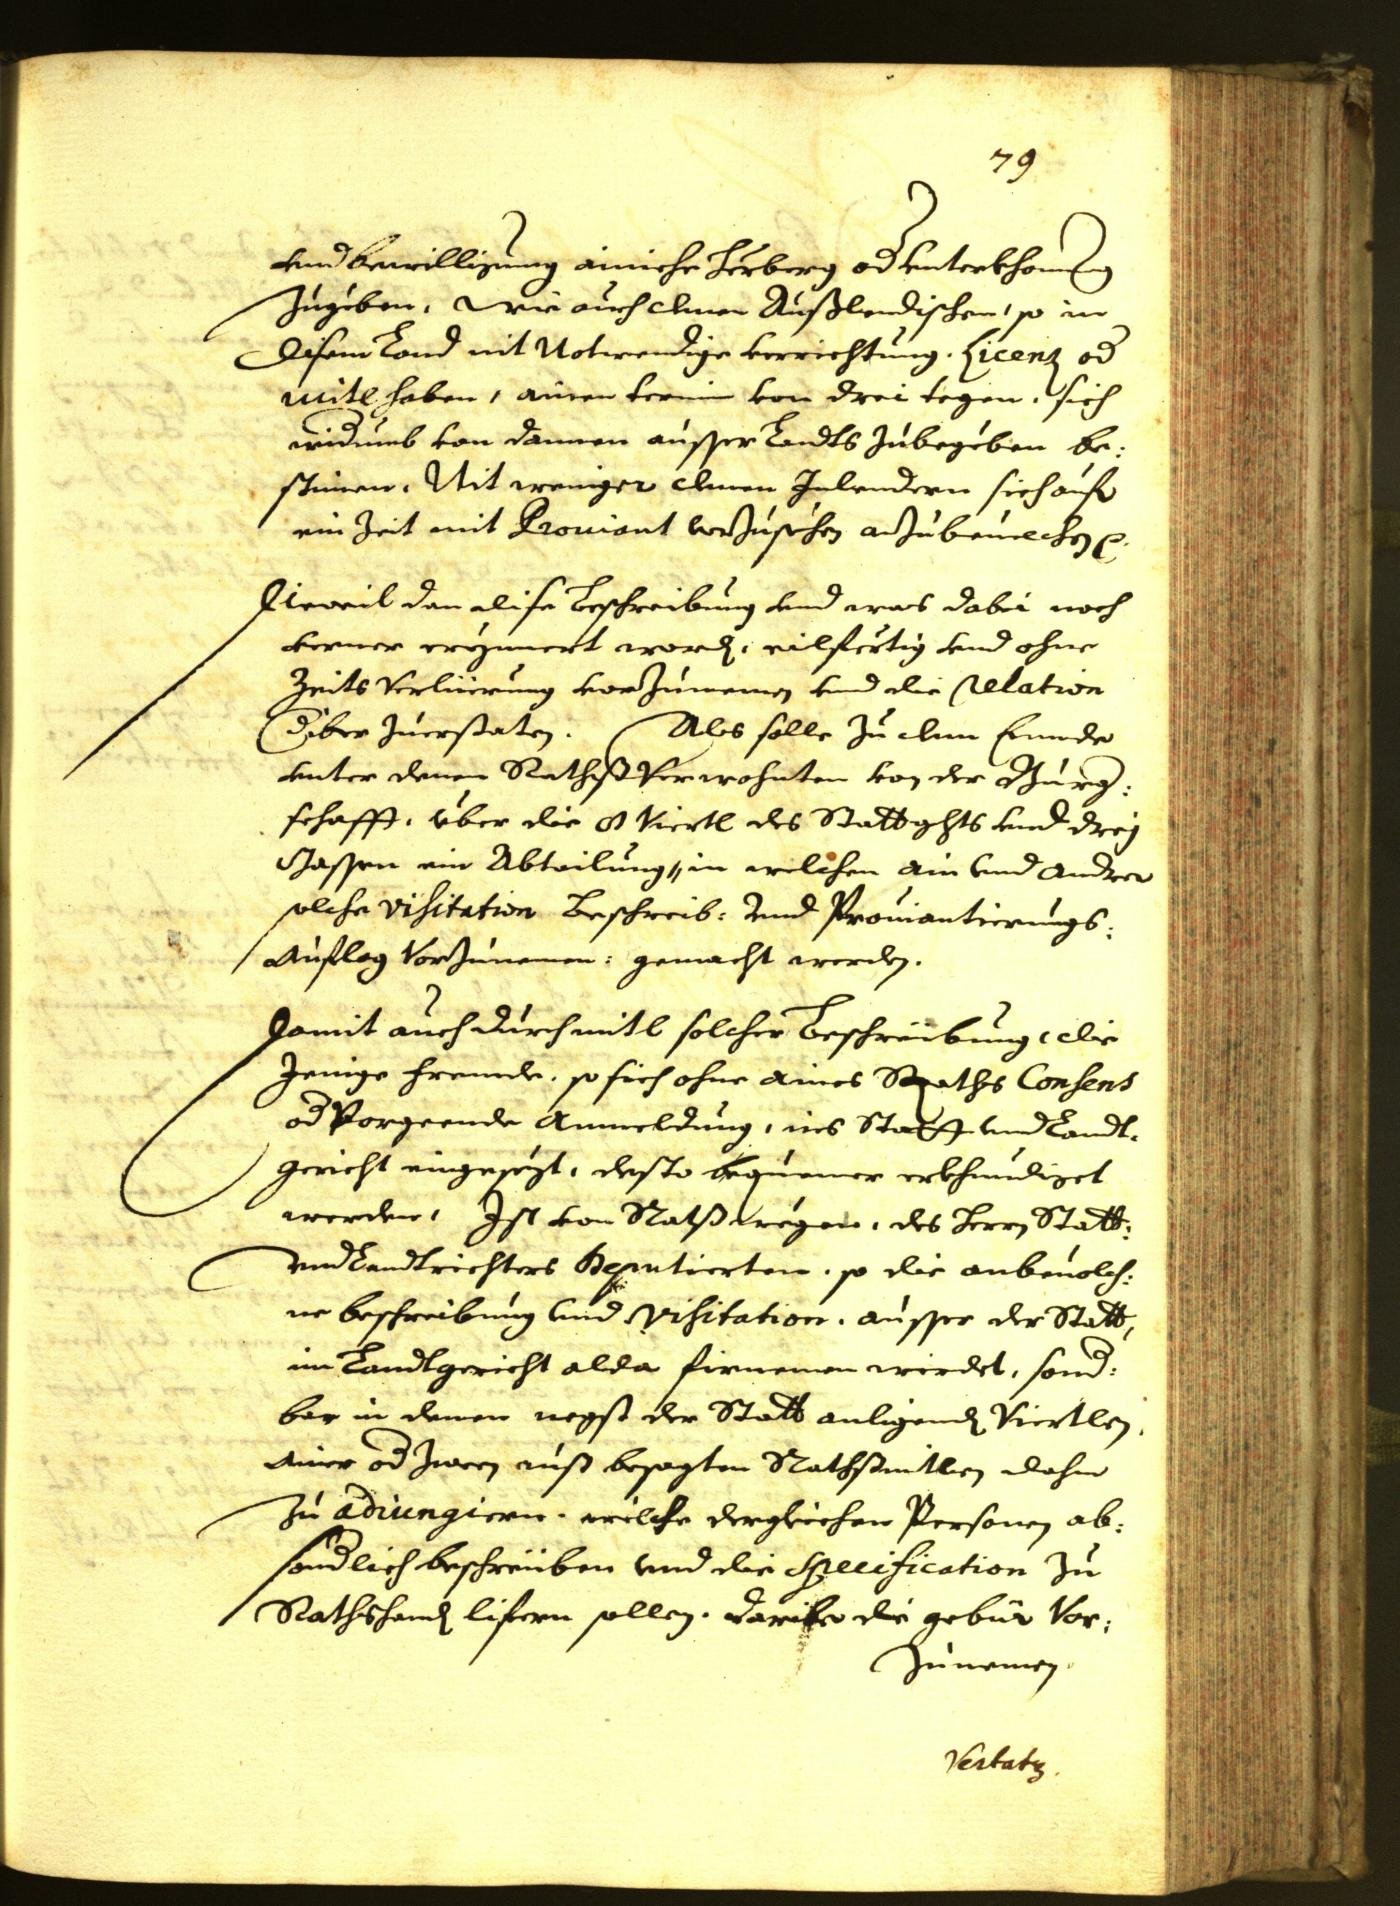 79
vnd bewilligung ainiche Herberg od vnterkhomung
zugeben, wie auch denen Außlendischen, so in
disem Land nit Notwendige verrichtung, Licenz od
mitl haben, ainen termin von drei tagen, sich
widumb von dannen ausser Landts zubegeben be:
stimen, Nit weniger denen Inlendern sich auf
ein Zeit mit Prouiant verzusehen anzubeuelchen
Dieweil dan dise Beschreibung vnd was dabei noch
ferner erynnert word, eilfertig vnd ohne
Zeits Verliierung vorzunemen vnd die relation
diber zuerstaten. Als solle zu dem Ennde
vnter denen Rathß Verwohnten von der Burg:
schafft, über die 8 Viertl des Stattghts vnd drey
Gassen ein Abteilung, in welchen ain vnd andrer
solche visitation Beschreib: vnd Prouiantierungs:
Auflag Vorzunemen: gemacht werden.
Damit auch durch mitl solcher Beschreibung, die
Jenige fremde, so sich ohne aines Raths Consens
od Vorgeende Anmeldung, ins Statt vnd Landt.
gericht eingesezt, desto bequemer erkhundiget
werden, Ist von Ratß wegen, des Herrn Statt:
vnd Landtrichters Deputierten, so die anbeuolch:
ne beschreibung vnd visitation, ausser der Statt,
im Landtgericht alda firnemen wirdet, sond:
bar in denen negst der Statt anligend Viertlen,
ainer od zween auß besagten Rathßmitlen dahin
zu adiungiern, welche dergleichen Personen ab:
sondlich beschreiben vnd die specification zu
Rathshand lifern sollen, dariber die gebür Vor:
zunemen.
Vertatz.